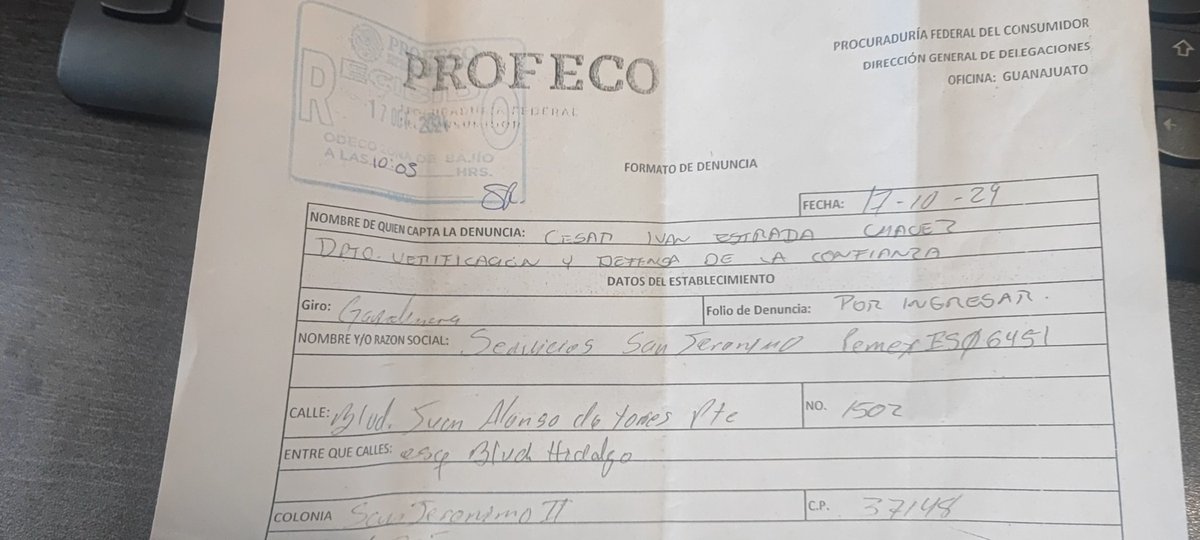 PROFECO
PROCURADURÍA FEDERAL DEL CONSUMIDOR
DIRECCIÓN GENERAL DE DELEGACIONES
OFICINA: GUANAJUATO
PROFECO
R
17
ODECO ZONA DE BAJÍO
A LAS 10:05 HRS.
FORMATO DE DENUNCIA
FECHA: 17-10-24
NOMBRE DE QUIEN CAPTA LA DENUNCIA: CESAR IVAN ESTRADA CHAVEZ
DPTO. VERIFICACIÓN Y DEFENSA DE LA CONFIANZA
DATOS DEL ESTABLECIMIENTO
Giro: Gasolinera Folio de Denuncia: POR INGRESAR.
NOMBRE Y/O RAZON SOCIAL: Servicios San Jeronimo Pemex ES06451
CALLE: Blvd. Juan Alonso de Torres Pte NO. 1502
ENTRE QUE CALLES: esq Blvd Hidalgo
COLONIA San Jeronimo II C.P. 37148